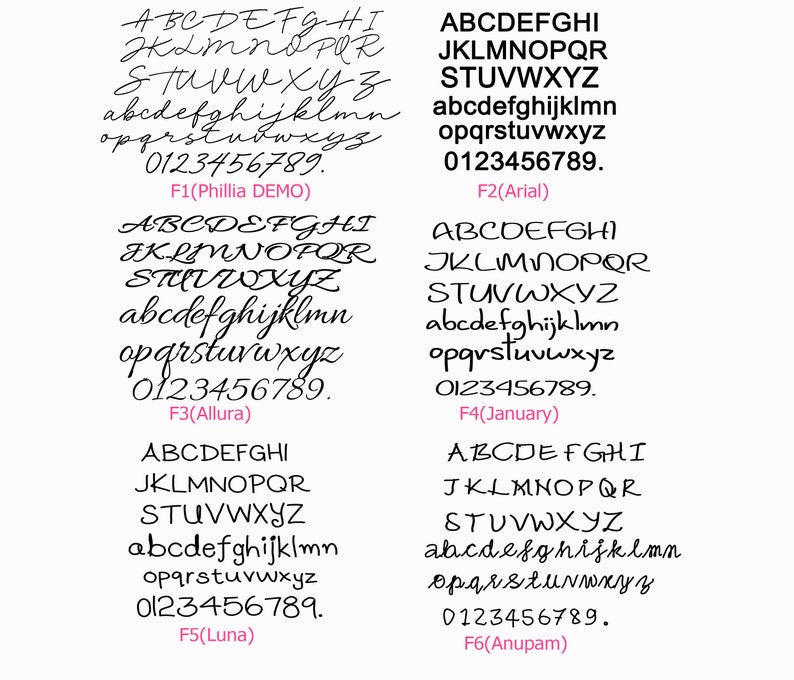 ABCDEFGHI
JKLMNOPQR
STUVWXYZ
abcdefghijklmn
opqrstuvwxyz
0123456789.
F1(Phillia DEMO)
ABCDEFGHI
JKLMNOPQR
STUVWXYZ
abcdefghijklmn
opqrstuvwxyz
0123456789.
F2(Arial)
ABCDEFGHI
JKLMNOPQR
STUVWXYZ
abcdefghijklmn
opqrstuvwxyz
0123456789.
F3(Allura)
ABCDEFGHI
JKLMNOPQR
STUVWXYZ
abcdefghijklmn
opqrstuvwxyz
0123456789.
F4(January)
ABCDEFGHI
JKLMNOPQR
STUVWXYZ
abcdefghijklmn
opqrstuvwxyz
0123456789.
F5(Luna)
ABCDEFGHI
JKLMNOPQR
STUVWXYZ
abcdefghijklmn
opqrstuvwxyz
0123456789.
F6(Anupam)